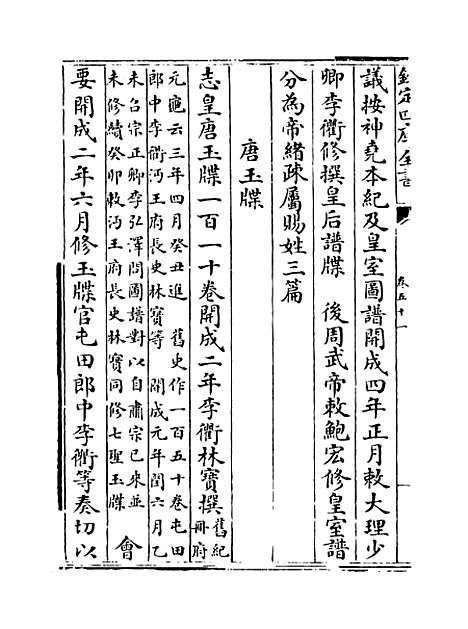 欽定四庫全書
卷五十一
議按神堯本紀及皇室圖譜開成四年正月敕大理少
卿李衢修撰皇后譜牒　後周武帝敕鮑宏修皇室譜
分為帝緒疎屬賜姓三篇
唐玉牒
志皇唐玉牒一百一十卷開成二年李衢林寶撰舊紀冊府
元龜云三年四月癸丑進　舊史作一百五十卷屯田
郎中李衢沔王府長史林寶等　開成元年閏六月乙
未召宗正卿李弘澤問圖譜對以自肅宗已來並
未修續癸卯敕沔王府長史林寶同修七聖玉牒　會
要開成二年六月修玉牒官屯田郎中李衢等奏切以